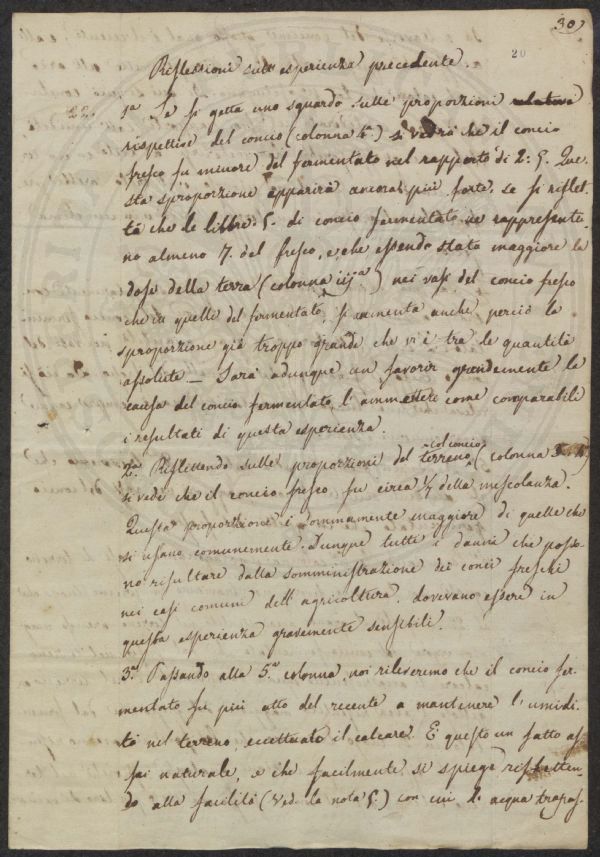 30
20
Riflessioni sull'esperienza precedente.
22. 1.a Se si getta uno sguardo sulle proporzioni relative
rispettive del concio (colonna 4.a) si vedrà che il concio
fresco fu minore del fermentato nel rapporto di 2: 5. Que-
sta sproporzione apparirà ancora più forte, se si riflet-
tà che le libbre 5. di concio fermentato ne rappresenta-
no almeno 7. del fresco, e che essendo stata maggiore la
dose della terra (colonna iij.a) nei vasi del concio fresco
che in quelli del fermentato, si aumenta anche perciò la
sproporzione già troppo grande che vi è tra le quantità
assolute — Sarà adunque un favorir grandemente la
causa del concio fermentato l'ammettere come comparabili
i resultati di questa esperienza.
2.a Riflettendo sulle proporzioni del terreno col concio (colonna
si vede che il concio fresco fu circa 1/7 della mescolanza.
Questa proporzione è sommamente maggiore di quelle che
si usano comunemente. Dunque tutti i danni che posso-
no risultare dalla somministrazione dei conci freschi
nei casi comuni dell'agricoltura, dovevano essere in
questa esperienza gravemente sensibili.
3.a Passando alla 5.a colonna, noi rileveremo che il concio fer-
mentato fu più atto del recente a mantenere l'umidi-
tà nel terreno, eccettuato il calcare. È questo un fatto as-
sai naturale, e che facilmente si spiega rifletten-
do alla facilità (Ved. la nota 5.) con cui l'acqua trapas-